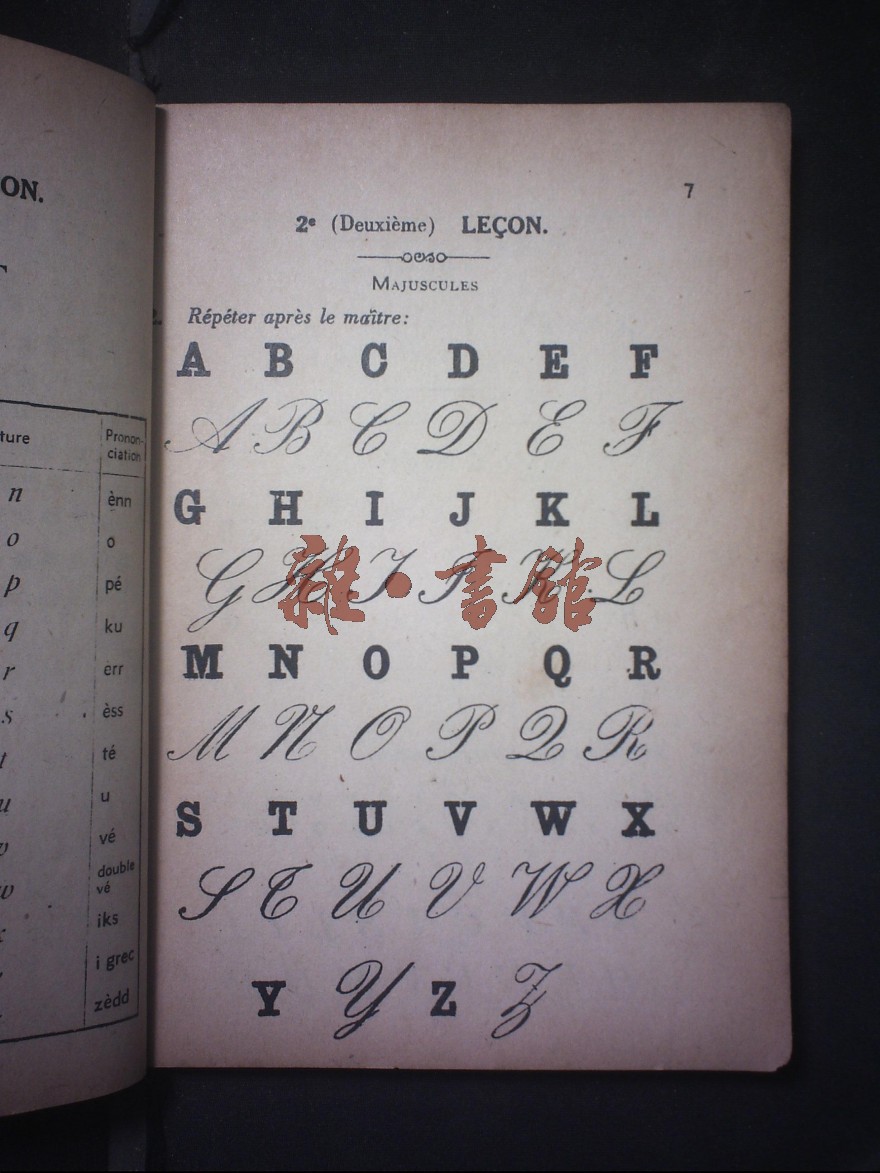 ON.
ture Pronon-
ciation
n ènn
o o
p pé
q ku
r èrr
s èss
t té
u u
v vé
w double
vé
iks
i grec
zèdd
7
2e (Deuxième) LEÇON.
MAJUSCULES
2. Répéter après le maître:
A B C D E F
A B C D E F
G H I J K L
G H I J K L
雜·書館
M N O P Q R
M N O P Q R
S T U V W X
S T U V W X
Y Y Z Z